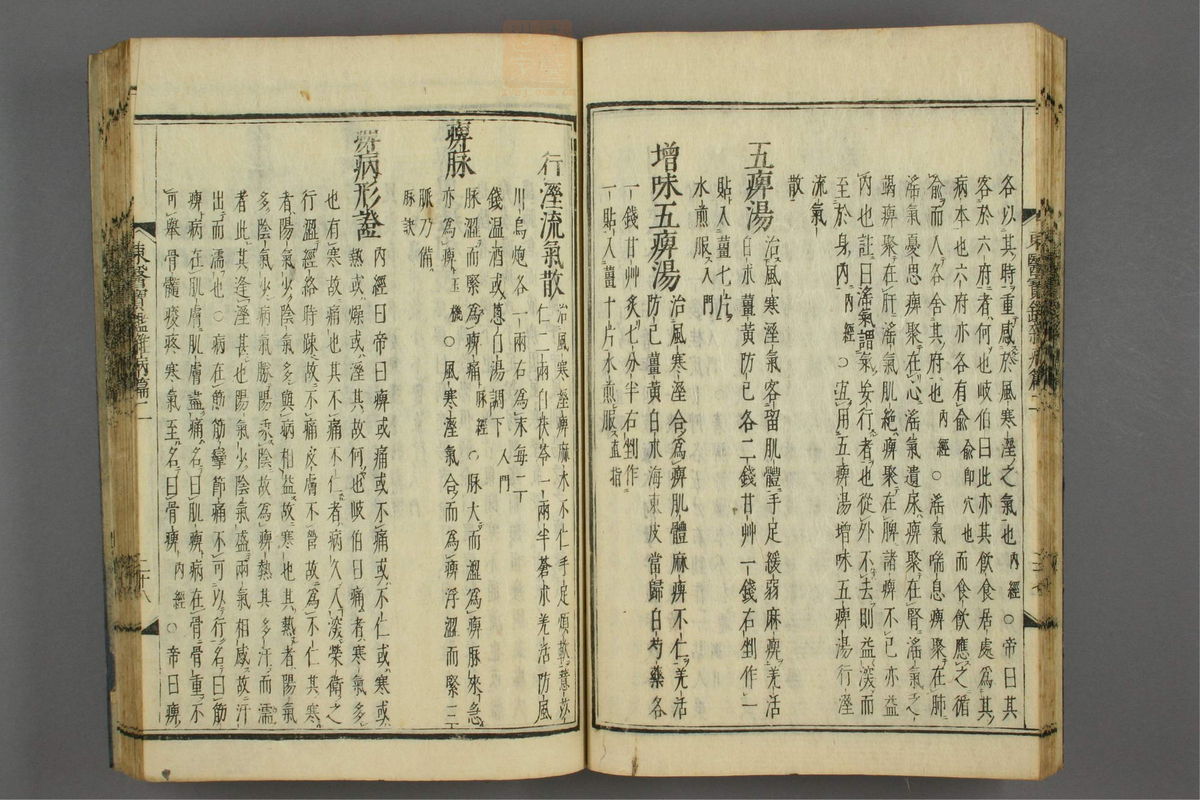 各以其時重感於風寒溼之氣也內經○帝曰其
客於六府者何也岐伯曰此亦其飲食居處爲其
病本也六府亦各有俞俞卽穴也而食飲應之循
俞而入各舍其府也內經○淫氣喘息痺聚在肺
淫氣憂思痺聚在心淫氣遺尿痺聚在腎淫氣乏
竭痺聚在肝淫氣肌絶痺聚在脾諸痺不已亦益
內也註曰淫氣謂氣妄行者也從外不去則益深而
至於身內內經○宜用五痺湯增味五痺湯行溼
流氣散
五痺湯治風寒溼氣客留肌體手足緩弱麻痺羌活
白朮薑黃防已各二錢甘艸一錢右剉作一
貼入薑七片
水煎服入門
增味五痺湯治風寒溼合爲痺肌體麻痺不仁羌活
防已薑黃白朮海東皮當歸白芍藥各
一錢甘艸灸七分半右剉作
一貼入薑十片水煎服直指
行溼流氣散治風寒溼痺麻木不仁手足煩軟薏苡
仁二兩白茯苓一兩半蒼朮羌活防風
川烏炮各一兩右爲末每二
錢溫酒或葱白湯調下入門
痺脉脉澀而緊爲痺痛脉經○脉大而澀爲痺脉來急
亦爲痺玉機○風寒溼氣合而爲痺浮澀而緊三
脈乃備
脉訣
痺病形證內經曰帝曰痺或痛或不痛或不仁或寒或
熱或燥或溼其故何也岐伯曰痛者寒氣多
也有寒故痛也其不痛不仁者病久入深榮衛之
行澀經絡時踈故不痛皮膚不營故爲不仁其寒
者陽氣少陰氣多與病相益故寒也其熱者陽氣
多陰氣少病氣勝陽乘陰故爲痺熱其多汗而濡
者此其逢溼甚也陽氣少陰氣盛兩氣相感故汗
出而濡也○病在筋筋攣節痛不可以行名曰筋
痺病在肌膚肌膚盡痛名曰肌痺病在骨骨重不
可擧骨髓痠疼寒氣至名曰骨痺內經○帝曰痺
東醫寶鑑雜病篇二
二十八